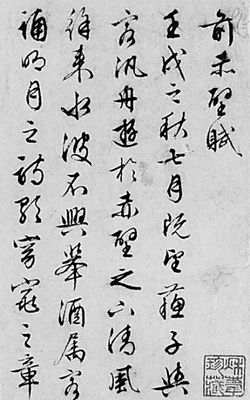 前赤壁賦
壬戌之秋七月既望蘇子與
客汎舟遊於赤壁之下清風
徐來水波不興舉酒属客
誦明月之詩歌窈窕之章